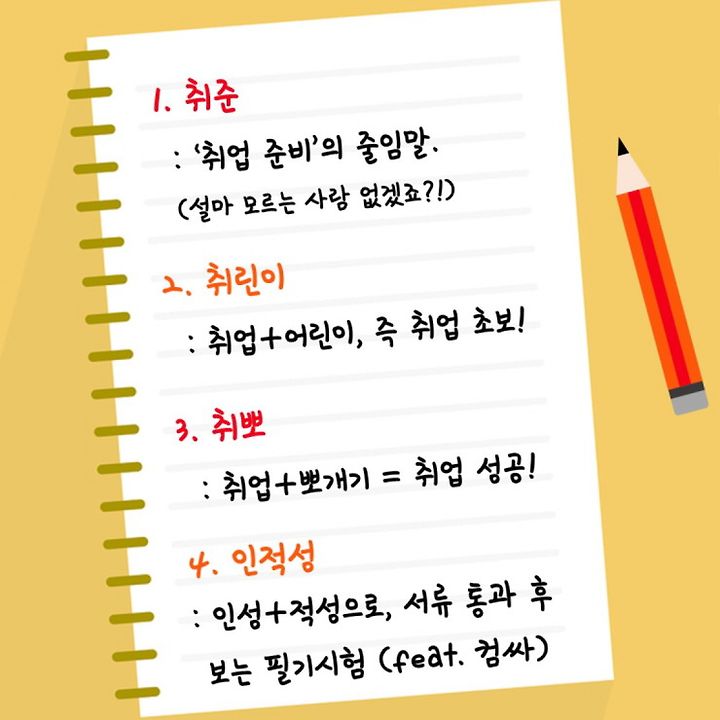 1. 취준
: '취업 준비'의 줄임말.
(설마 모르는 사람 없겠죠?!)
2. 취린이
: 취업+어린이, 즉 취업 초보!
3. 취뽀
: 취업+뽀개기 = 취업 성공!
4. 인적성
: 인성+적성으로, 서류 통과 후
보는 필기시험 (feat. 컴싸)